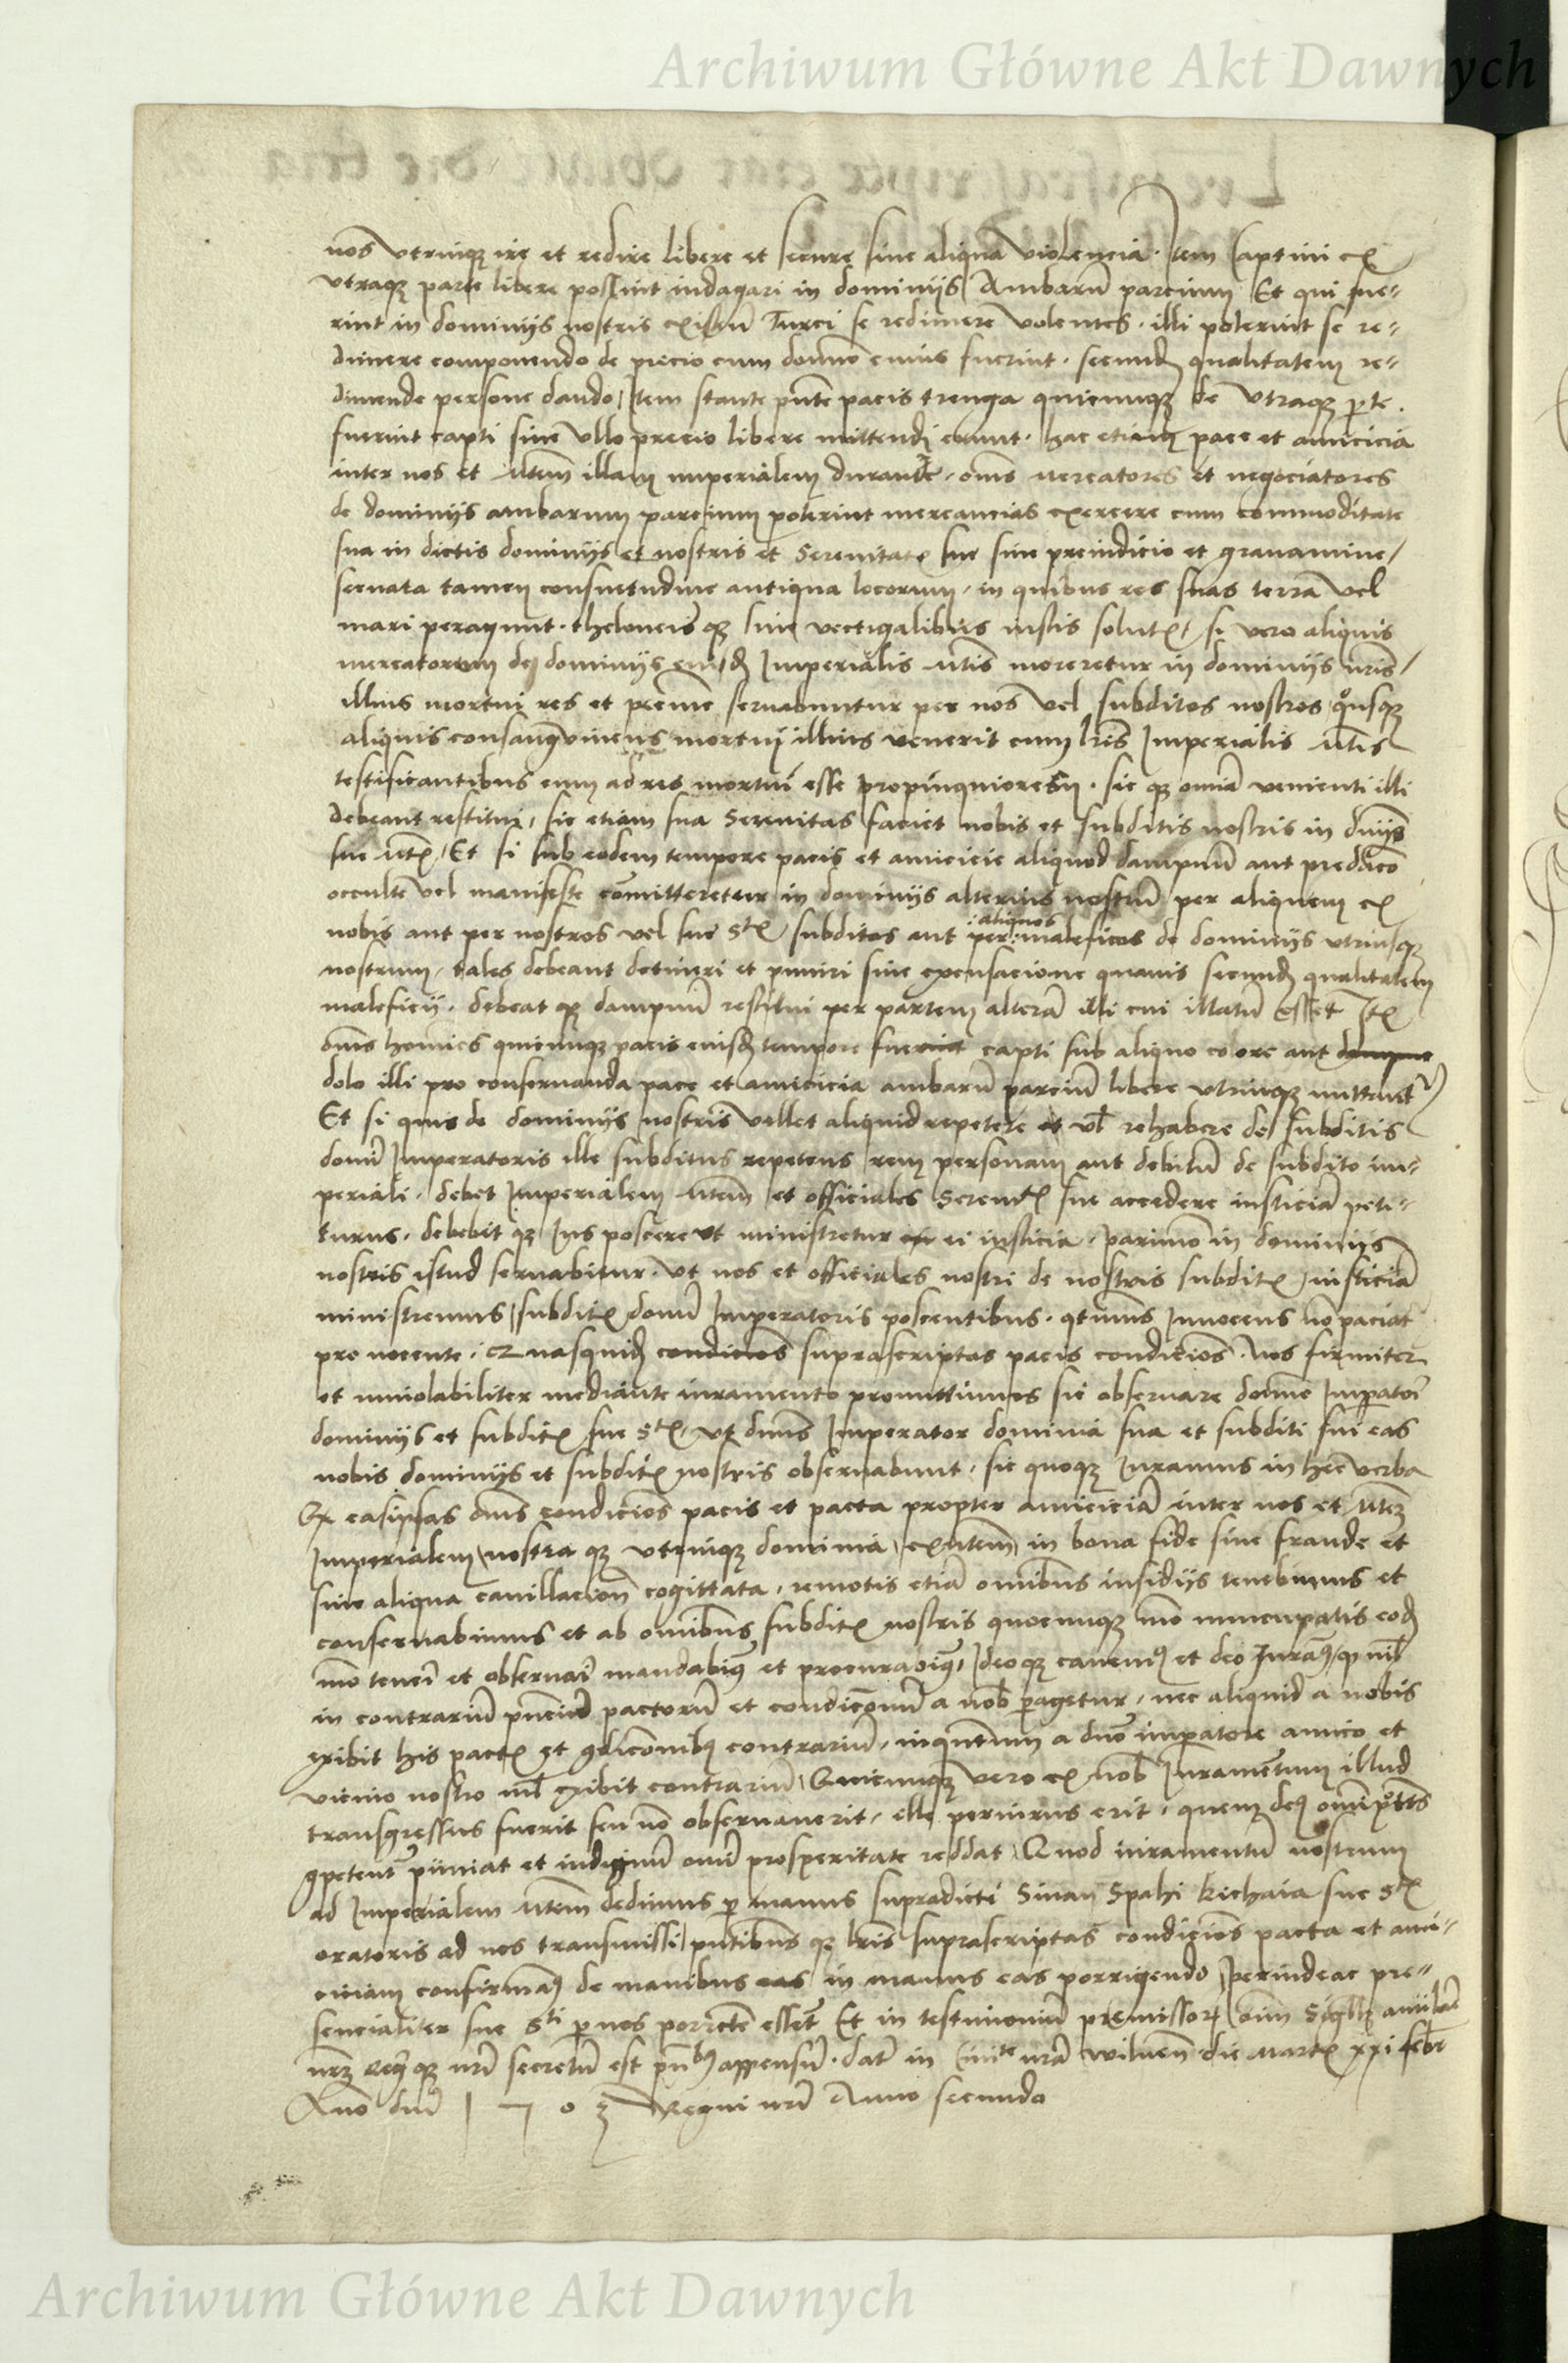 Archiwum Główne Akt Dawnych
nos vtrinq̃ ire et redire libere et secure sine aliqua violencia. Item Captiui ex
vtraq̃ parte libere possint indagari in dominijs Ambarũ parcium Et qui fue-
rint in dominijs nostris existũ Turci se redimere volentes. illi poterint se re-
dimere componendo de precio cum domĩo cuius fuerint. secundũ qualitatem re-
dimende persone dando, Item stante pñte pacis treuga quicunq̃ de vtraq̃ pte.
fuerint capti sine vllo precio libere mittendi erunt. hac etiam pace et amicicia
inter nos et Mtem illam imperialem durante, oms mercatores et negociatores
de dominijs ambarum parcium poterint mercancias exercere cum commoditate
sua in dictis dominijs et nostris et Serenitatis sue sine preiudicio et grauamine,
seruata tamen consuetudine antiqua locorum, in quibus res suas terra vel
mari peragunt. theloneis q̃ siue vectigalibus iustis solutis, si vero aliquis
mercatorum de dominijs eiusd̃ Imperialis Mtis moreretur in dominijs nr̃is,
illius mortui res et premie seruabuntur per nos vel subditos nostros quousq̃
aliquis consanguineus mortui illius venerit cum lr̃is Imperialis Mtis
testificantibus eum ad res mortui esse propinquiorem. sic q̃ omnia venienti illi
debeant restitui, sic etiam sua Serenitas faciet nobis et subditis nostris in dnijs
sue Mtis, Et si sub eodem tempore pacis et amicicie aliquod dampnũ aut predacõ
occulte vel manifeste cõmitteretur in dominijs alterius nostrũ per aliquem ex
nobis aut per nostros vel sue Stis subditos aut per :aliquos: maleficos de dominijs vtriusq̃
nostrum, tales debeant detineri et puniri sine excusacione quauis secundũ qualitatem
maleficij. debeat q̃ dampnũ restitui per partem alterã illi cui illatũ esset Itẽ
oms homines quicunq̃ pacis eiusd̃ tempore fuerint capti sub aliquo colore aut dampne
dolo illi pro conseruanda pace et amicicia ambarũ parciũ libere vtrinq̃ mittentr
Et si quis de dominijs nostris vellet aliquid repetere et vl rehabere de subditis
domĩ Imperatoris ille subditus repetens rem personam aut debitũ de subdito im-
periali, debet Imperialem Mtem et officiales Serenitis sue accedere iusticiã peti-
turus. debebit q̃ Ius poscere vt ministretur ei iusticia, parimõ in dominijs
nostris istud seruabitur. vt nos et officiales nostri de nostris subditis iusticiã
ministremus, subditis domĩ Imperatoris poscentibus. qtinus Innocens nõ paciat
pro nocente, Quasquid̃ condicioñs suprascriptas pacis condicioñs. Nos firmiter
et inuiolabiliter mediante iuramento promittimus sic obseruare domĩo Impatori
dominijs et subditis sue Stis, vt dnus Imperator dominia sua et subditi sui eas
nobis dominijs et subditis nostris obseruabunt, sic quoq̃ iuramus in hec verba
Qr easipsas oms condicioñs pacis et pacta propter amiciciã inter nos et Mtem
Imperialem nostra q̃ vtrinq̃ dominia, exñtem in bona fide sine fraude et
sine aliqua cauillacioñ cogittata, remotis etiã omibus insidijs tenebimus et
conseruabimus et ab omibus subditis nostris quocunq̃ mõ nuncupatis eod̃
mõ teneri et obseruari mandabim9 et procurabim9, Ideoq̃ cauem9 et deo Iuram9, q nil
in contrariũ pñciũ pactorũ et condicionũ a nob pagetur, nec aliquid a nobis
exibit his pactis et condicionib9 contrariũ, inquantum a dno impatore amico et
vicino nostro nil exibit contrarium, Quicunq̃ vero ex nob Iuramentum illud
transgressus fuerit seu nõ obseruauerit, ille periurus erit, quem de9 omipotẽs
competent puniat et indignũ omi prosperitate reddat, Quod iuramentũ nostrum
ad Imperialem Mtem dedimus p manus supradicti Sinan Spahi kichaia sue Stis
oratoris ad nos transmissi, pñtibus q̃ lr̃is suprascriptas condicioñs pacta et ami-
ciciam confirmam9 de manibus eas in manus eas porrigendo, perindeac pre-
sencialiter sue Sti p nos porrecte essent Et in testimoniũ premissor oim Sigillũ anulare
nr̃m Req̃ nr̃i secretũ est pñtib9 appensũ. datũ in Ciuitte nrã wilneñ die Martis xxi Febr
Anno dni 1503 Regni nr̃i Anno secundo
Archiwum Główne Akt Dawnych